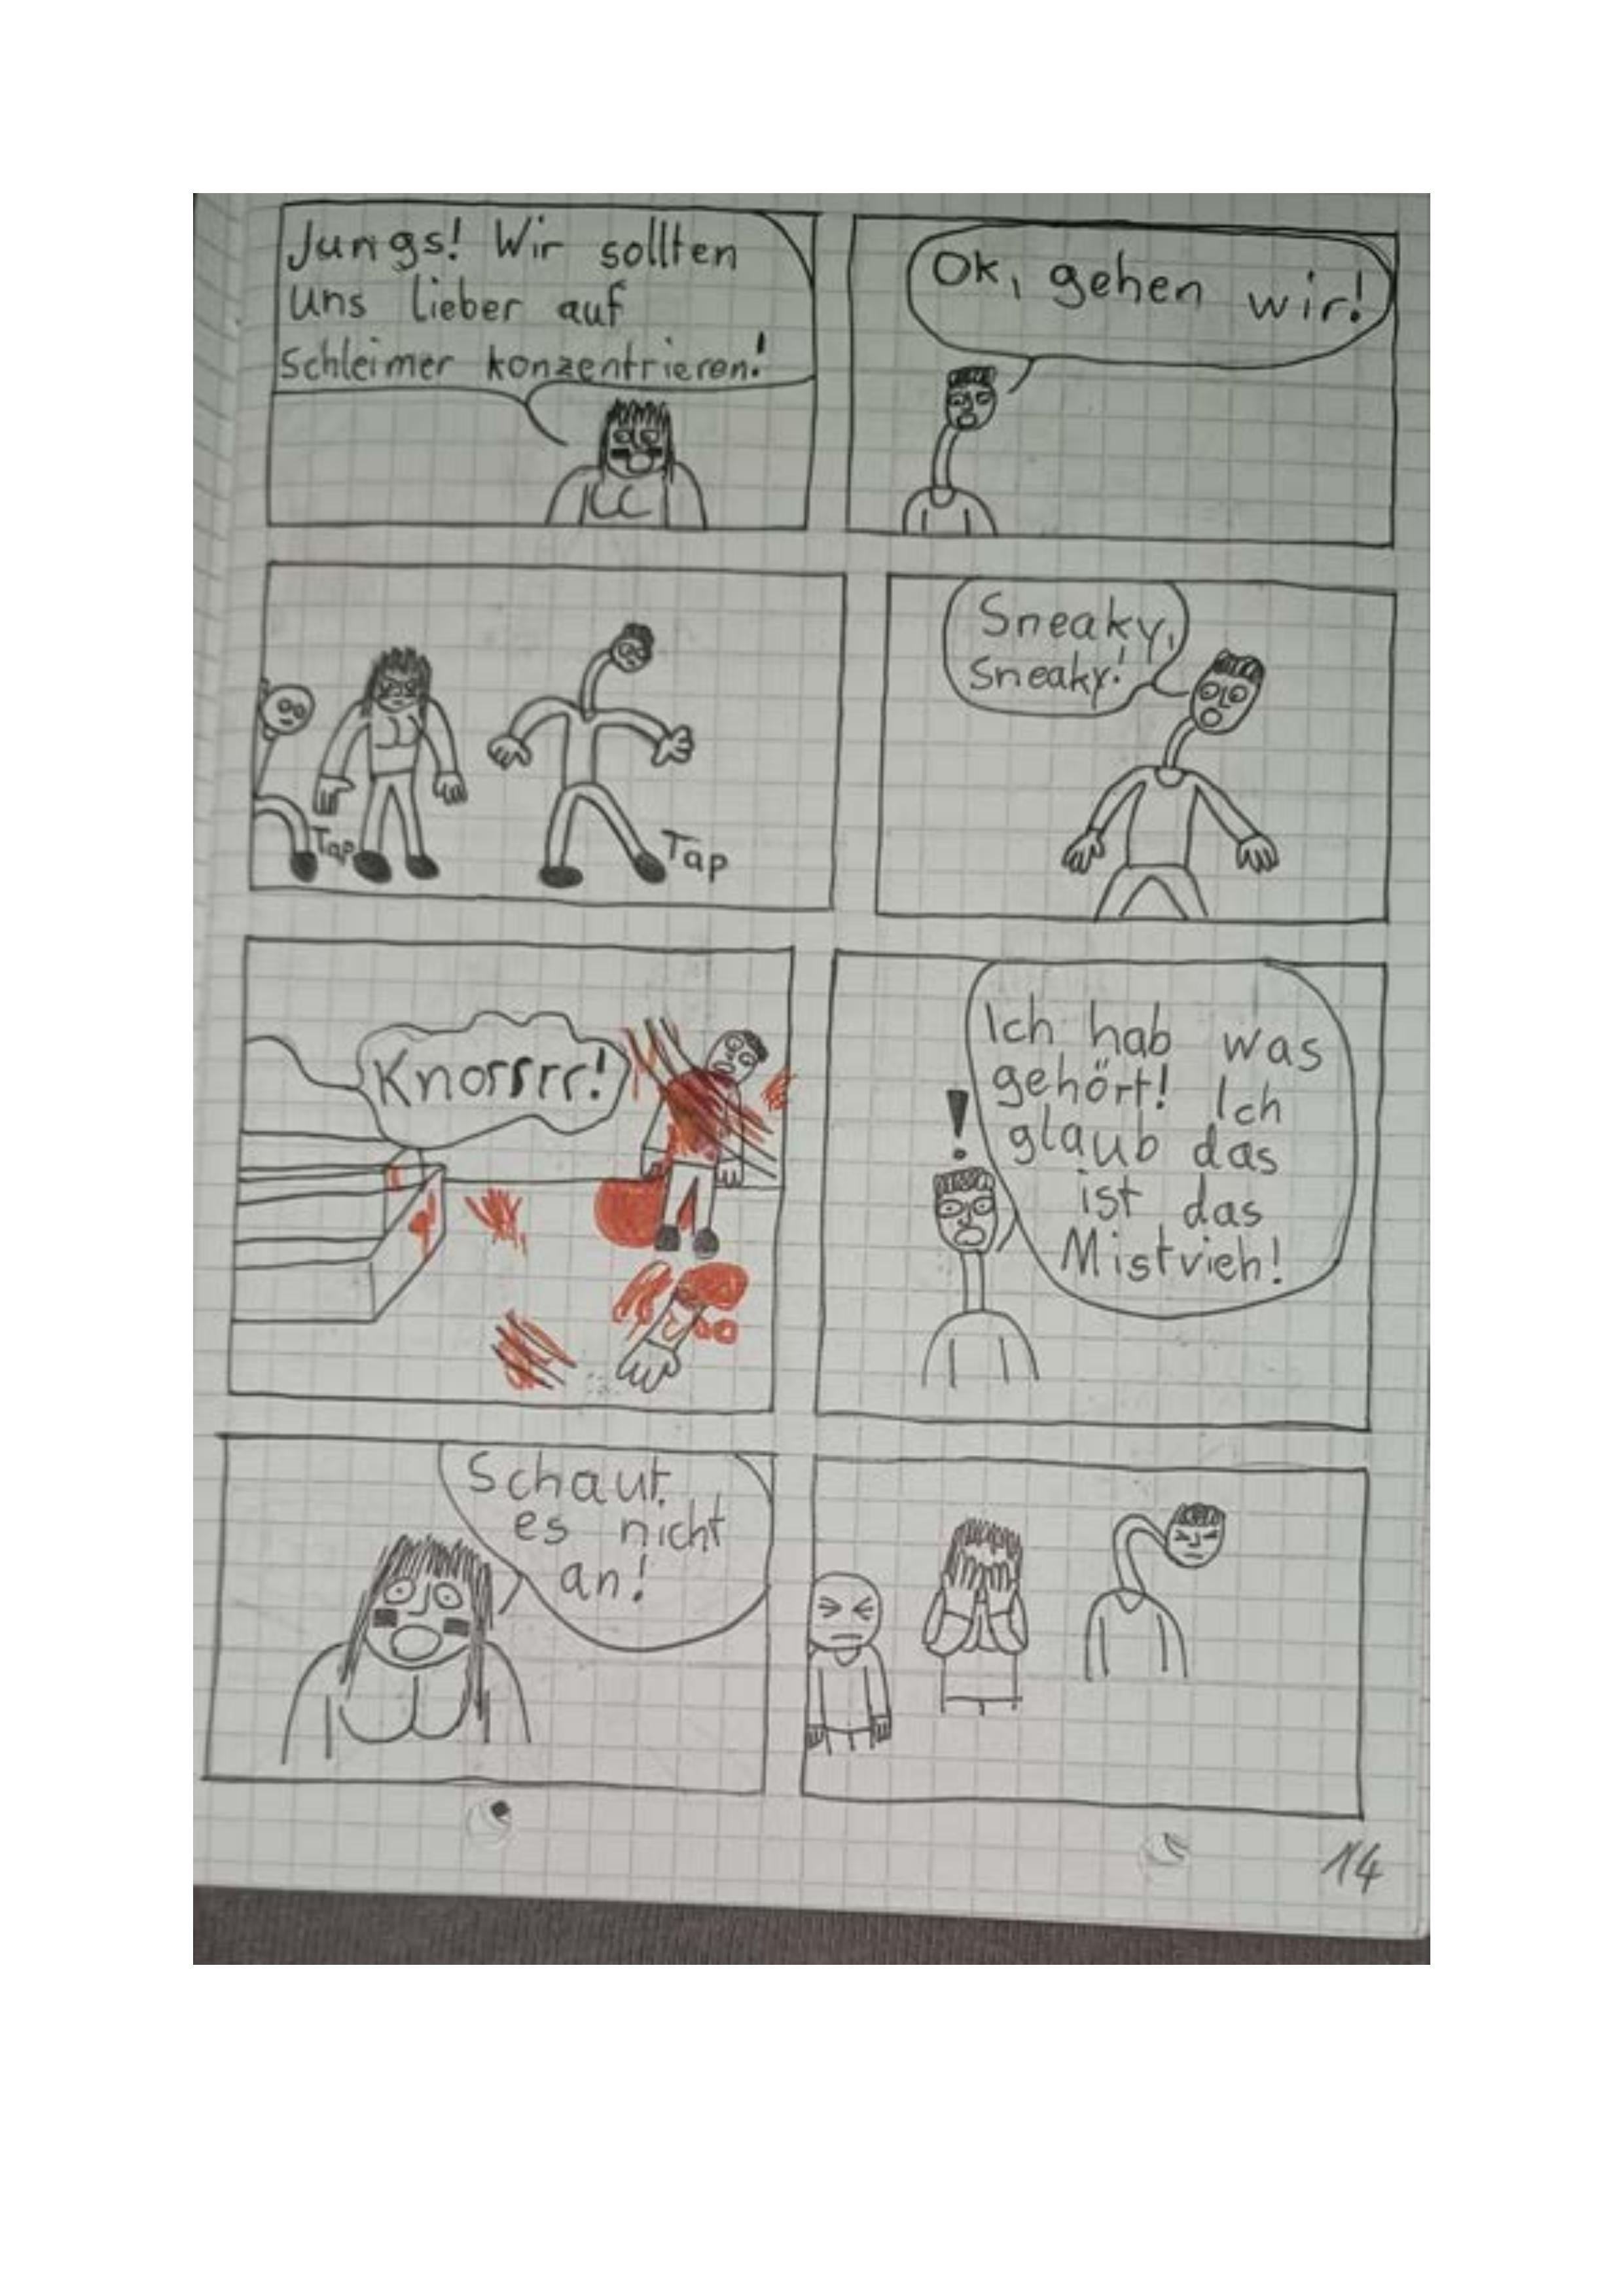 Jungs! Wir sollten
uns lieber auf
Schleimer konzentrieren!
Ok, gehen wir!
Tap
Tap
Sneaky,
sneaky!
Knorrrr!
!
Ich hab was
gehört! Ich
glaub das
ist das
Mistvieh!
Schaut
es nicht
an!
14